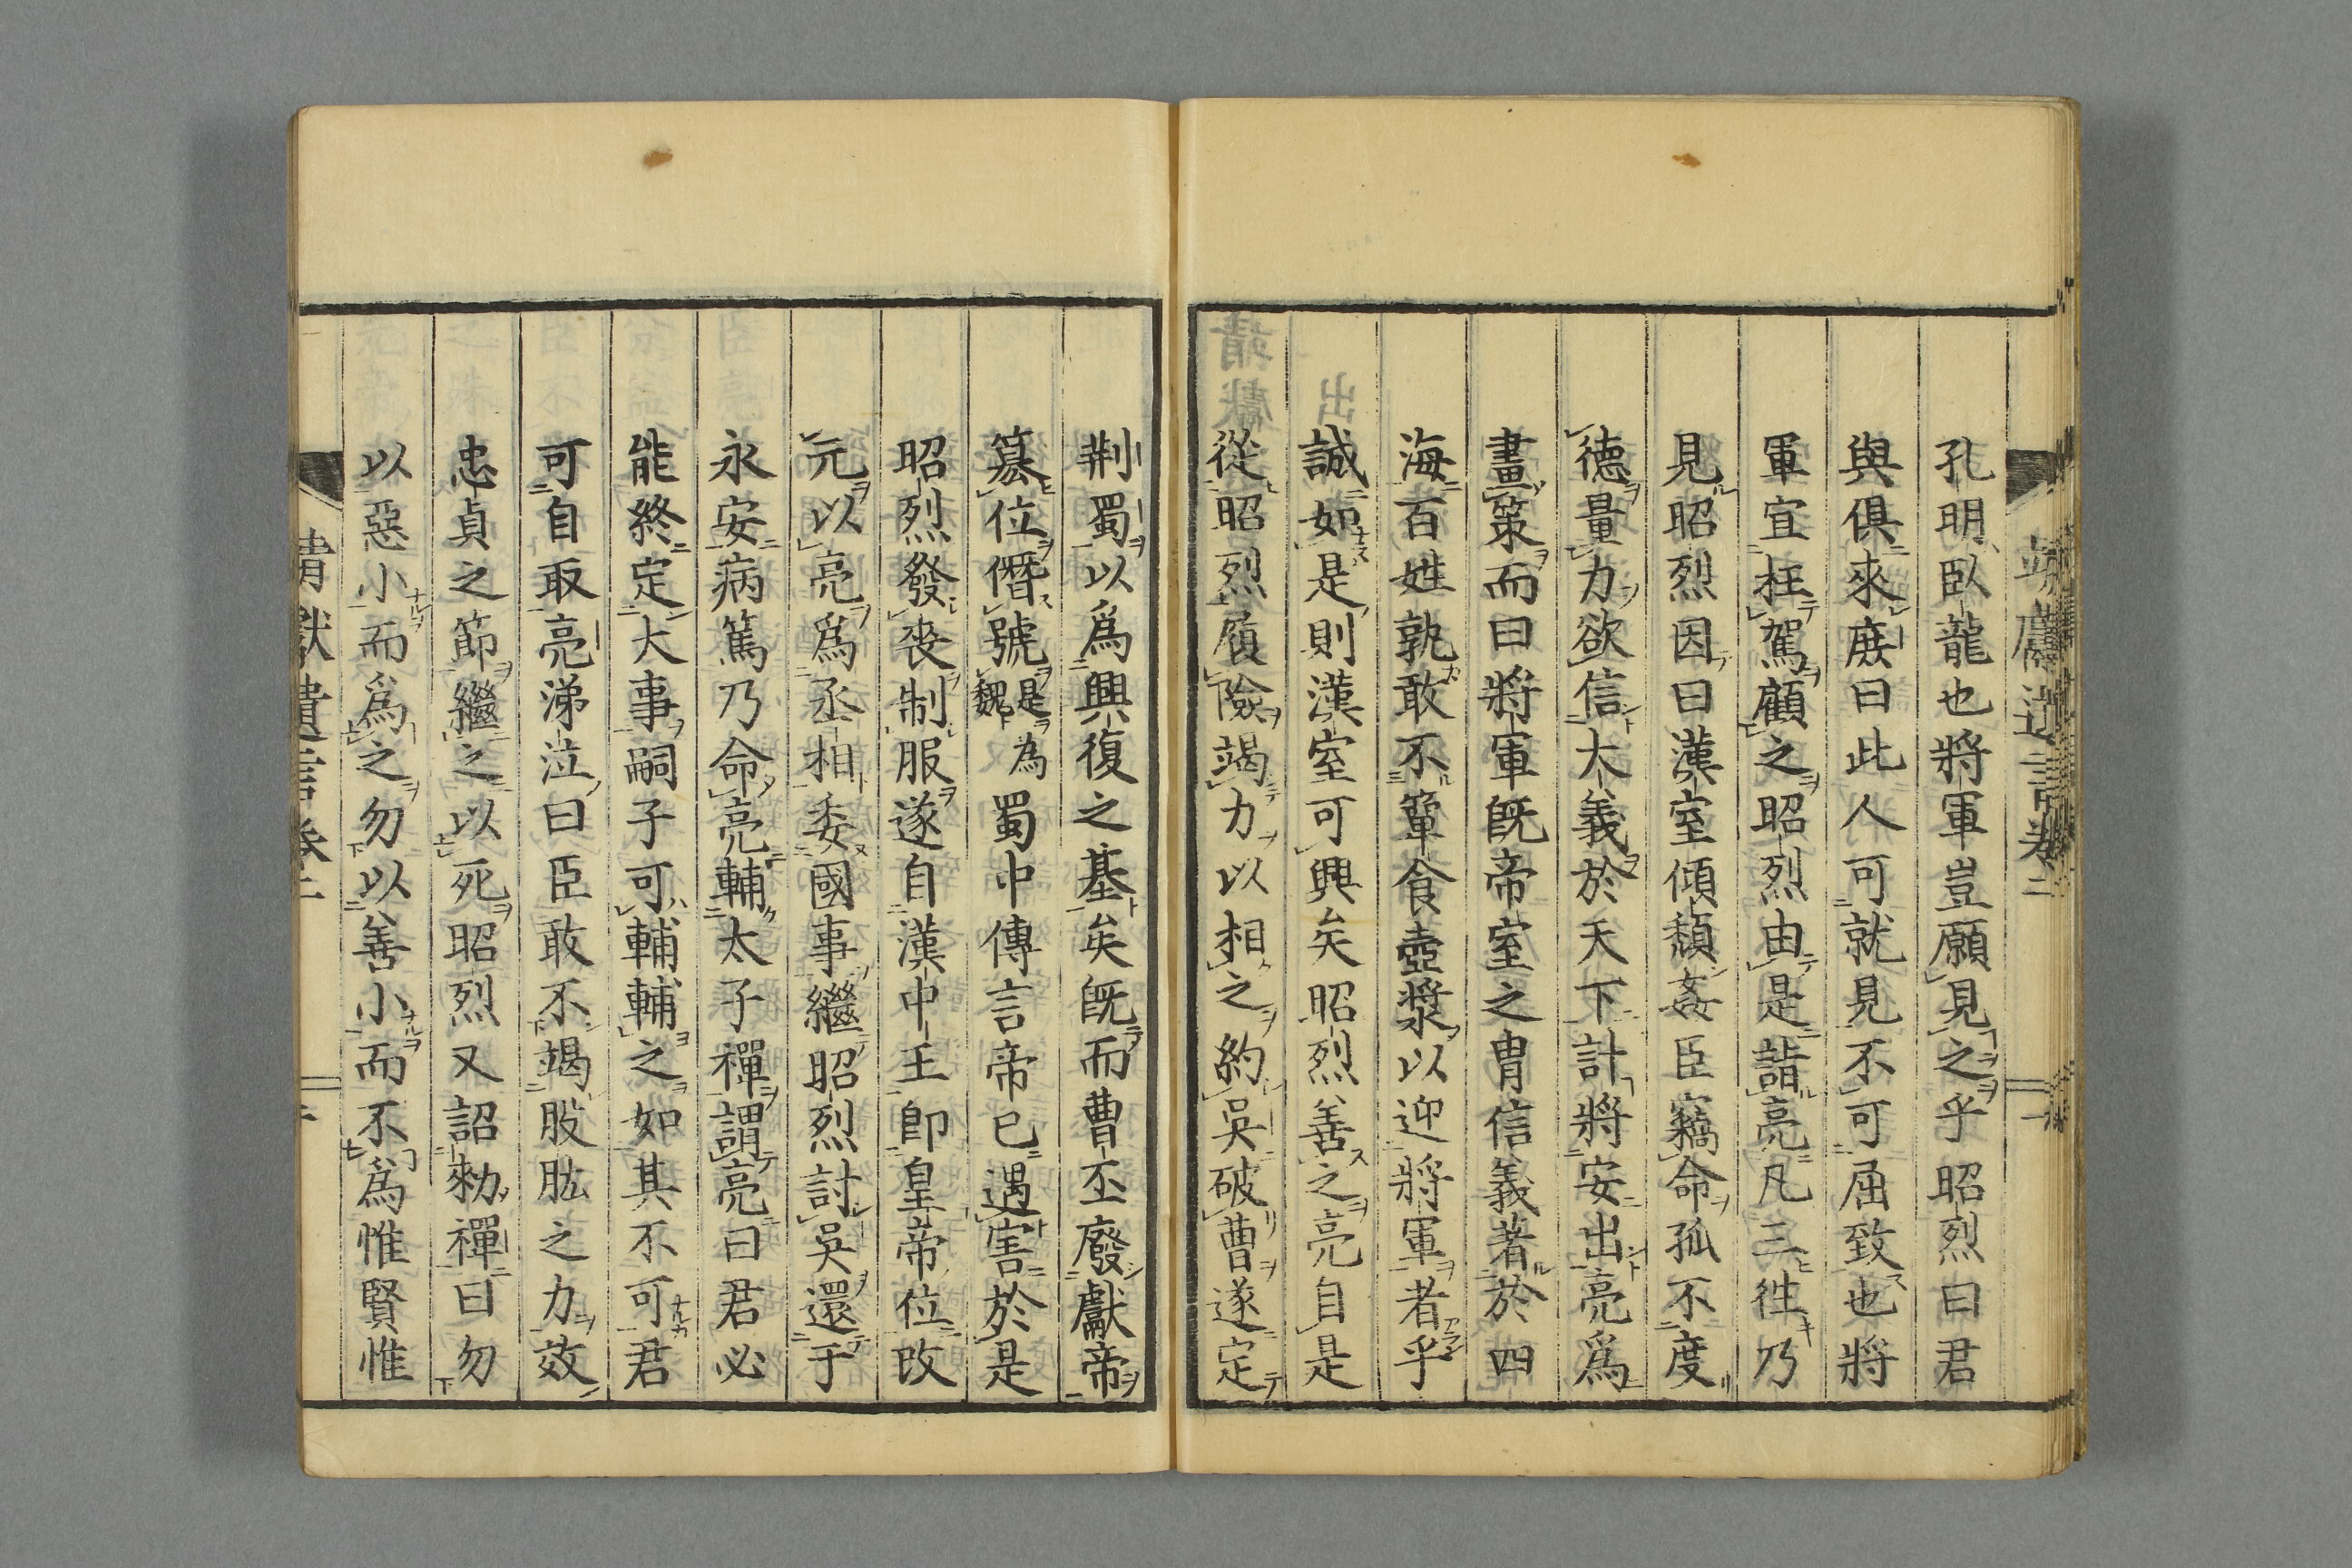 孔明臥龍也將軍豈願見之乎昭烈曰君
與俱來庶曰此人可就見不可屈致也將
軍宜枉駕顧之昭烈由是詣亮凡三徃乃
見昭烈因曰漢室傾頽姦臣竊命孤不度
德量力欲信大義於天下計將安出亮爲
畫策而曰將軍既帝室之胄信義著於四
海百姓孰敢不簞食壺漿以迎將軍者乎
誠如是則漢室可興矣昭烈善之亮自是
從昭烈履險竭力以相之約吳破曹遂定
荆蜀以爲興復之基矣既而曹丕廢獻帝
簒位僭號是爲魏蜀中傳言帝已遇害於是
昭烈發丧制服遂自漢中王卽皇帝位改
元以亮爲丞相委國事繼昭烈討吳還于
永安病篤乃命亮輔太子禪謂亮曰君必
能終定大事嗣子可輔輔之如其不可君
可自取亮涕泣曰臣敢不竭股肱之力效
忠貞之節繼之以死昭烈又詔勑禪曰勿
以惡小而爲之勿以善小而不爲惟賢惟
靖獻遺言卷二